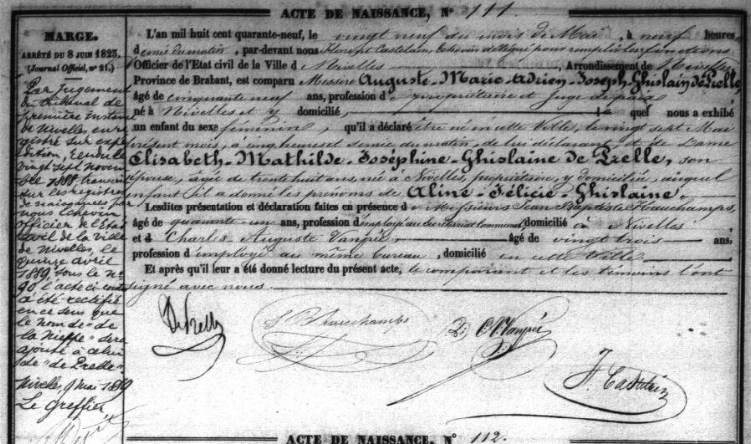 ACTE DE NAISSANCE, N° 111.
MARGE.
ARRÊTÉ DU 8 JUIN 1823.
(Journal Officiel, n° 21.)
Par jugement
du tribunal de
première instance
de Nivelles enre
gistré sur expé
dition, rendu le
vingt sept novem
bre 1888 transcrit
sur les registres
de naissances par
nous Echevin
officier de l'Etat
civil de la ville
de Nivelles, le
quinze avril
1889 sous le n°
90 l'acte ci contre
a été rectifié
en ce sens que
le nom de « de
la Nieppe » sera
ajouté à celui
de « de Prelle ».
Nivelles, 9 mai 1889
Le Greffier
L'an mil huit cent quarante-neuf, le vingt neuf du mois de Mai, à neuf heures
demie du matin, par-devant nous Florent Castelain, Echevin délégué pour remplir les fonctions
Officier de l'Etat civil de la Ville de Nivelles, Arrondissement de Nivelles,
Province de Brabant, est comparu Messire Auguste-Marie-Adrien-Joseph-Ghislain de Prelle,
âgé de cinquante neuf ans, profession de propriétaire et Juge de paix
né à Nivelles et y domicilié quel nous a exhibé
un enfant du sexe féminin, qu'il a déclaré être né en cette Ville, le vingt sept Mai
présent mois, à une heure et demie du matin, de lui déclarant et de Dame
Elisabeth-Mathilde-Joséphine-Ghislaine de Prelle, son
épouse, âgée de trente huit ans, née à Nivelles propriétaire, y domiciliée, auquel
enfant il a donné les prénoms de Aline-Félicie-Ghislaine.
Lesdites présentation et déclaration faites en présence de Messieurs Jean Baptiste Hauchamps,
âgé de quarante-un ans, profession d'employé au secrétariat communal domicilié à Nivelles
et de Charles Auguste Vanpée âgé de vingt trois ans,
profession d'employé au même bureau, domicilié en cette Ville
Et après qu'il leur a été donné lecture du présent acte, le comparant et les témoins l'ont
signé avec nous.
De Prelle
J B Hauchamps
C A Vanpée
F. Castelain
ACTE DE NAISSANCE, N° 112.